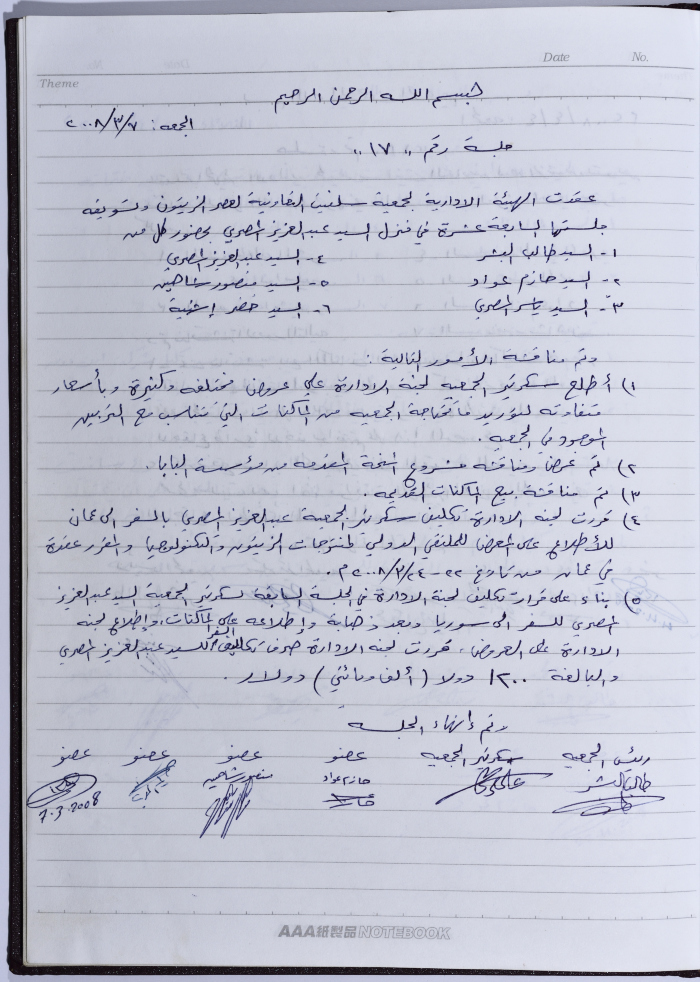 Date No.
Theme
بسم الله الرحمن الرحيم
الجمعة: ٢٠٠٨/٣/٧
جلسة رقم "١٧"
عقدت الهيئة الادارية لجمعية سلفيت التعاونية لعصر الزيتون وتسويقه
جلستها السابعة عشرة في منزل السيد عبدالعزيز المصري بحضور كل من
١- السيد طالب البشر ٤- السيد عبدالعزيز المصري
٢- السيد حازم عواد ٥- السيد منصور شاهين
٣- السيد ياسر المصري ٦- السيد خضر إشتية
وتم مناقشة الأمور التالية:
١) أطلع سكرتير الجمعيه لجنة الادارة على عروض مختلفه وكثيرة وبأسعار
متفاوته لتوريد ما تحتاجة الجمعيه من الماكنات التي تتناسب مع
الموجود في الجمعيه.
٢) تم عرض ومناقشه مشروع المنحة المقدمه من مؤسسة البابا.
٣) تم مناقشة بيع الماكنات القديمه.
٤) قررت لجنة الادارة تكليف سكرتير الجمعيه عبدالعزيز المصري بالسفر الى عمان
للأطلاع على المعرض للملتقى الدولي لمنتوجات الزيتون والتكنولوجيا والمقرر عقدة
في عمان من تاريخ ٢٢-٢٠٠٨/٣/٢٤م.
٥) بناء على قرار تكليف لجنة الادارة في الجلسة السابعة لسكرتير الجمعية السيد عبدالعزيز
المصري للسفر الى سوريا وبعد ذهابة وإطلاعه على الماكنات، وإطلاع لجنة
الادارة على العروض، قررت لجنة الادارة صرف تكاليف السفر للسيد عبدالعزيز المصري
والبالغة ١٢٠٠ دولا (ألف ومائتي) دولار.
وتم إنهاء الجلسه
رئيس الجمعيه سكرتير الجمعيه عضو عضو عضو عضو
طالب البشر حازم عواد منصور شاهين
7.3.2008
AAA紙製品NOTEBOOK